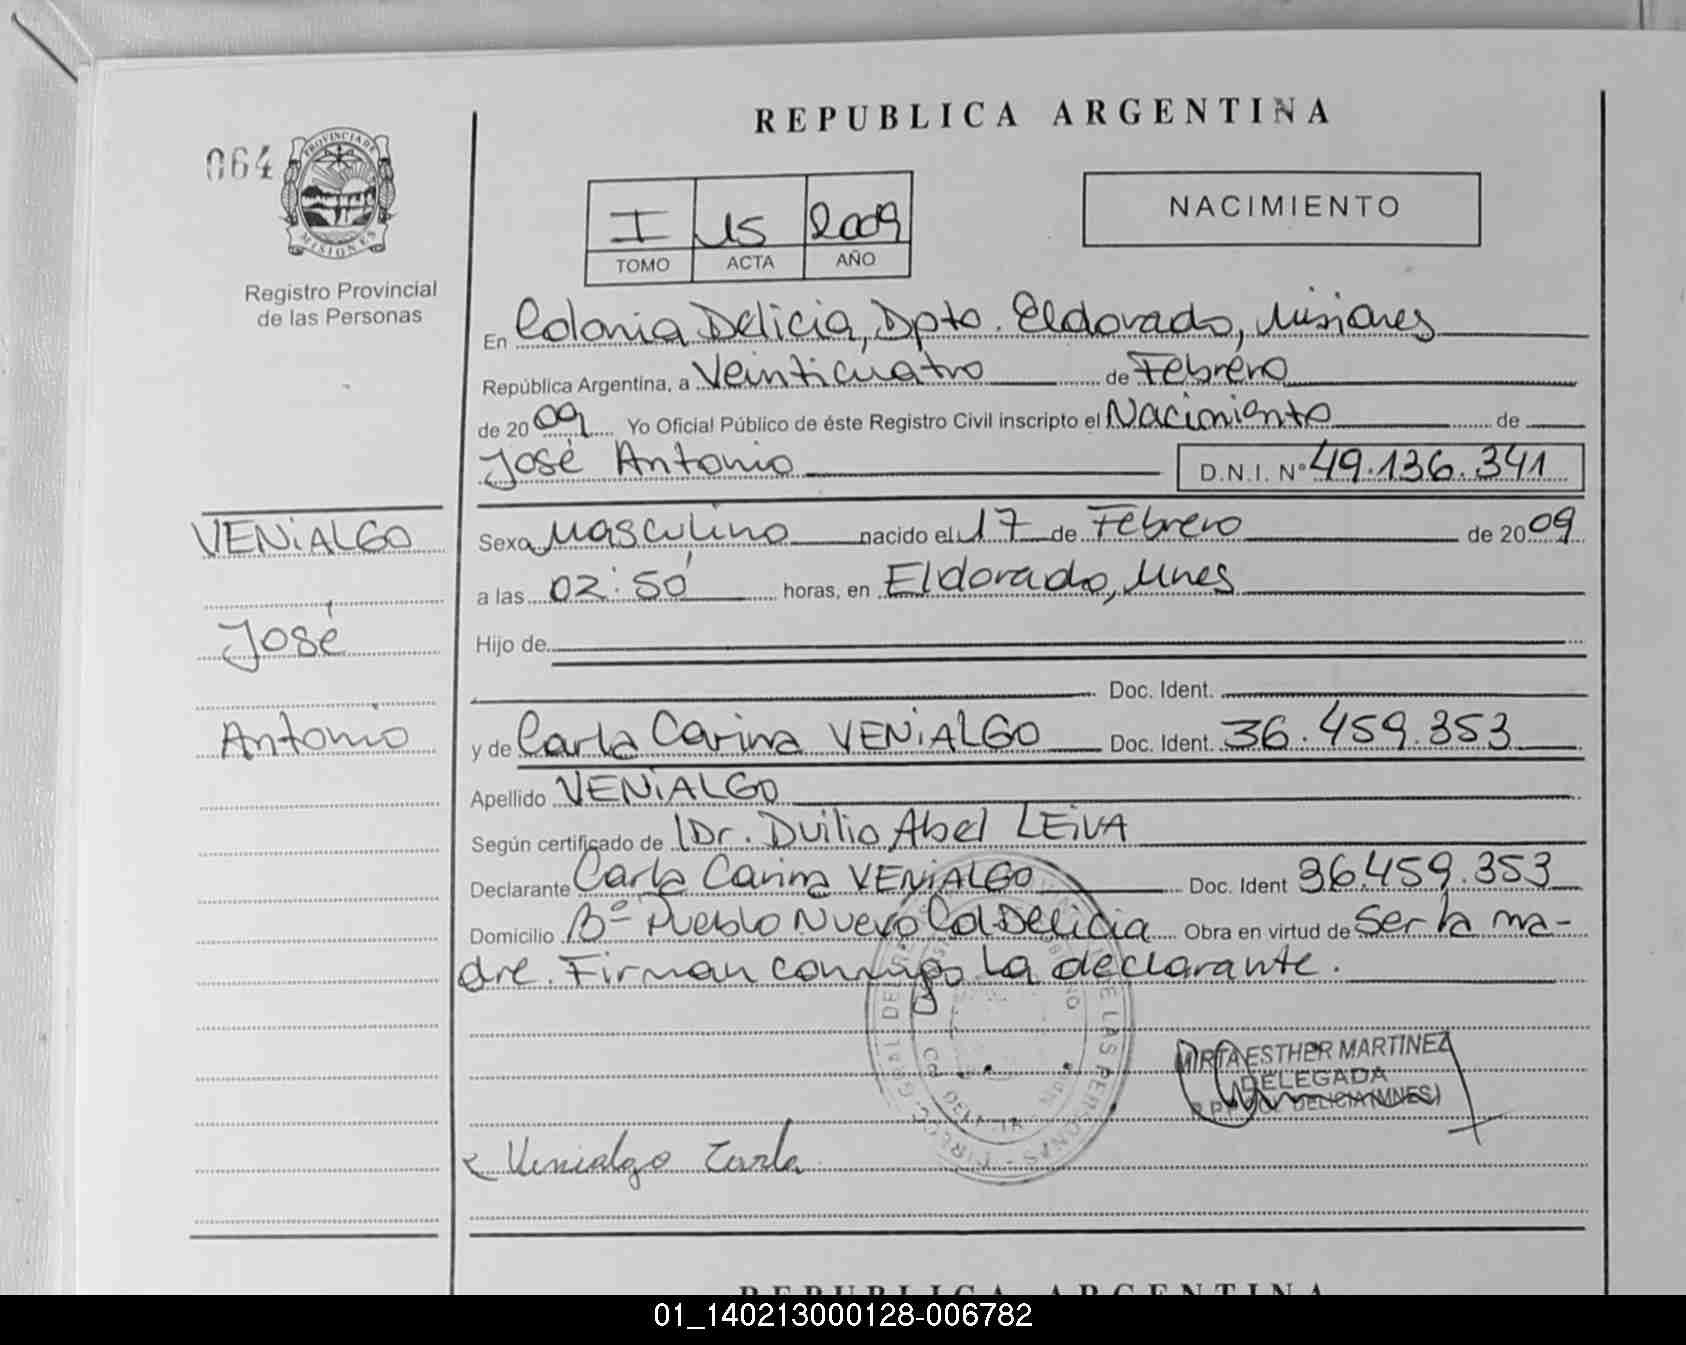 REPUBLICA ARGENTINA
064
PROVINCIA DE MISIONES
Registro Provincial
de las Personas
I 115 2009
TOMO ACTA AÑO
NACIMIENTO
En Colonia Delicia, Dpto. Eldorado, Misiones
República Argentina, a Veinticuatro de Febrero
de 2009 Yo Oficial Público de éste Registro Civil inscripto el Nacimiento de
José Antonio D.N.I. Nº 49.136.341
VENIALGO
José
Antonio
Sexo Masculino nacido el 17 de Febrero de 2009
a las 02:50' horas, en Eldorado, Mnes
Hijo de
Doc. Ident.
y de Carla Carina VENIALGO Doc. Ident. 36.459.353
Apellido VENIALGO
Según certificado de Dr. Duilio Abel LEIVA
Declarante Carla Carina VENIALGO Doc. Ident 36.459.353
Domicilio Bº Pueblo Nuevo Col. Delicia Obra en virtud de Ser la ma-
dre. Firman conmigo la declarante.
DE LAS PERSONAS
MIRTA ESTHER MARTINEZ
DELEGADA
DELICIA (MNES)
Venialgo Carla
REPUBLICA ARGENTINA
01_140213000128-006782